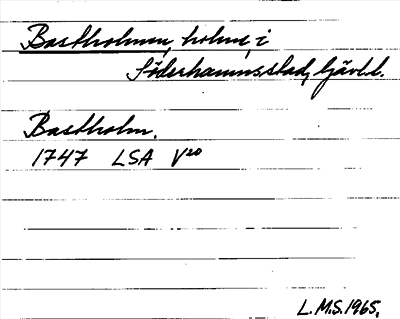 Bastholmen, holme, i
Söderhamns stad, Gävl.l.
Bastholm.
1747 LSA V20
L.M.S. 1965.